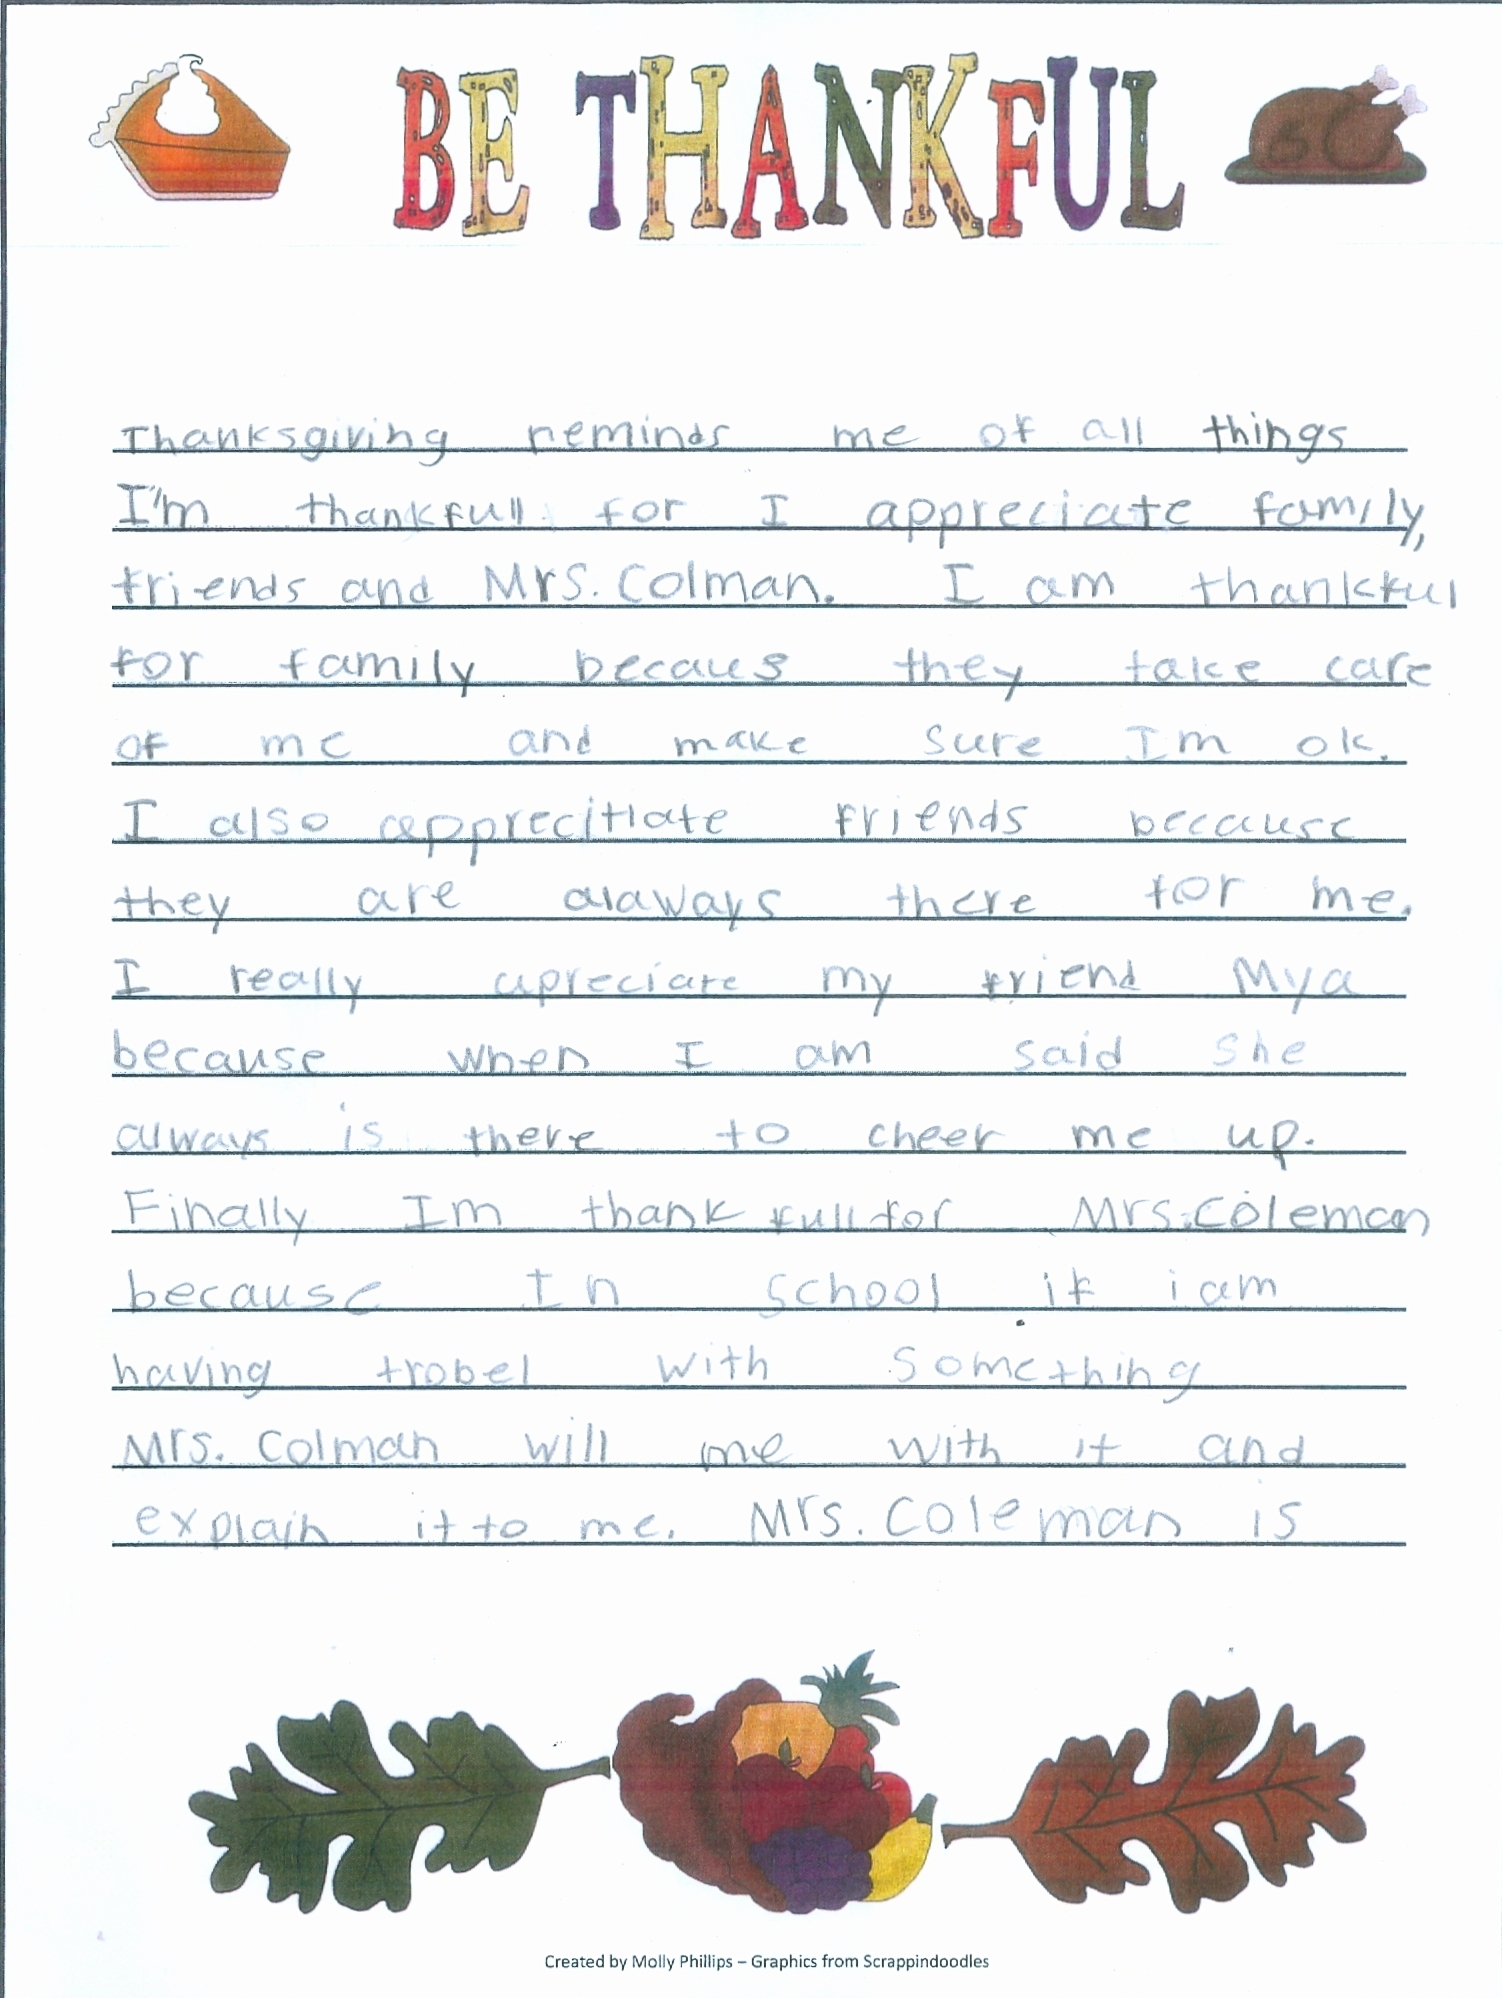 BE THANKFUL
Thanksgiving reminds me of all things
I'm thankfull for I appreciate family,
friends and Mrs. Colman. I am thankful
for family becaus they take care
of me and make sure Im ok.
I also apprecitiate friends because
they are alaways there for me.
I really apreciate my friend Mya
because when I am said she
always is there to cheer me up.
Finally Im thank full for Mrs. Coleman
because In school if i am
having trobel with something
Mrs. Colman will me with it and
explain it to me. Mrs. Coleman is
Created by Molly Phillips – Graphics from Scrappindoodles